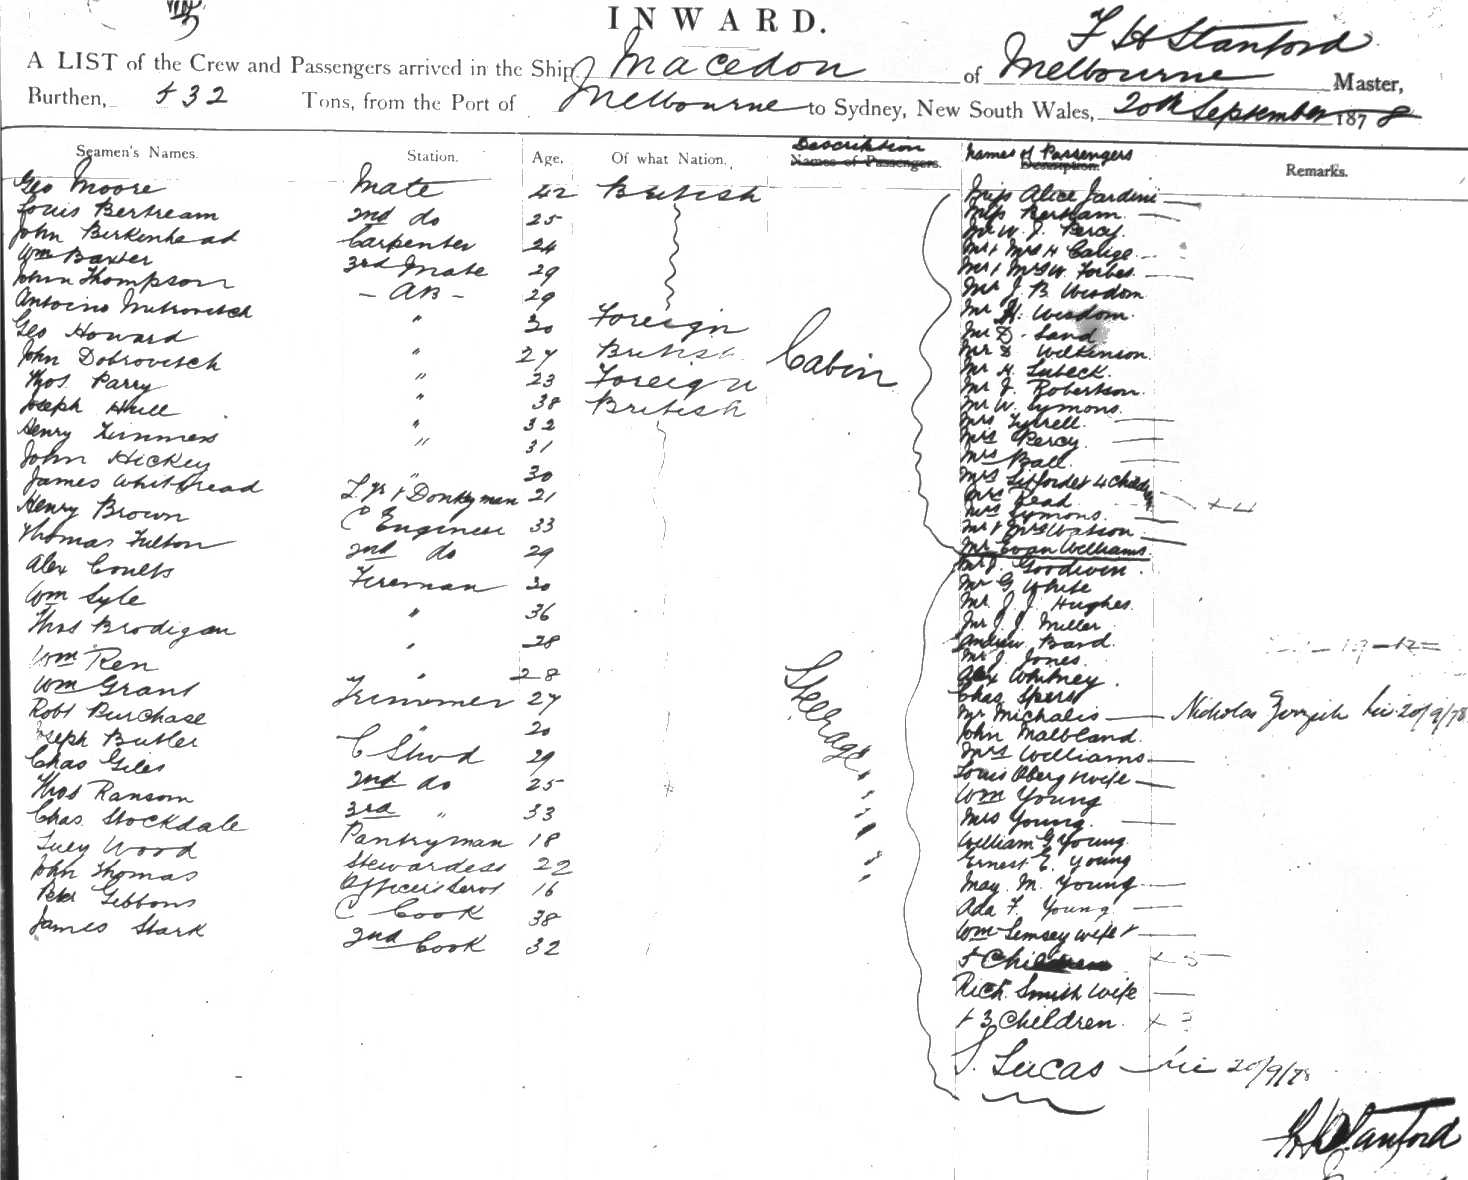 INWARD.
F H Stanford
A LIST of the Crew and Passengers arrived in the Ship Macedon of Melbourne Master,
Burthen, 532 Tons, from the Port of Melbourne to Sydney, New South Wales, 20th September 1878
Seamen's Names. Station. Age. Of what Nation. Description Names of Passengers. Names of Passengers Description. Remarks.
Geo Moore Mate 42 British
Louis Bertream 2nd do 25
John Birkenhead Carpenter 24
Wm Baxter 3rd Mate 29
John Thompson - AB - 29
Antoino Mitrovitch " 30 Foreign
Geo Howard " 27 British
John Dobrovitch " 23 Foreign
Thos Parry " 38 British
Joseph Hull " 32
Henry Timmers " 31
John Hickey " 30
James Whitbread Donkeyman 21
Henry Brown C Engineer 33
Thomas Fulton 2nd do 29
Alex Coults Fireman 30
Wm Lyle " 36
Thos Brodigan " 28
Wm Ren " 28
Wm Grant Trimmer 27
Robt Purchase " 20
Joseph Butler C Stwd 29
Chas Giles 2nd do 25
Thos Ransom 3rd " 33
Chas Stockdale Pantryman 18
Lucy Wood Stewardess 22
John Thomas Officers Servt 16
Peter Gibbons C Cook 38
James Stark 2nd Cook 32
Cabin
Miss Alice Jardine
Miss Bertram
Mr W. J. Percy
Mr & Mrs H Calige
Mr & Mrs W. Forbes
Mr J. B. Wisdom
Mr H. Wisdom
Mr D. Land
Mr S Wilkinson
Mr H. Lubeck
Mr J. Robertson
Mr W. Symons
Mrs Tyrrell
Mrs Percy
Mrs Ball
Mrs & 4 Children + 4
Mrs Read
Mrs Symons
Mr & Mrs Watson
Mr Evan Williams
Steerage
Mr J. Goodwin
Mr G White
Mr J. J. Hughes
Mr J. J. Miller
Andrew Bard
Mr J. Jones
Alex Whitney
Chas Spers
Mr Michalis Nicholas 20/9/78
John Malbland
Mrs Williams
Louis Oberg & wife
Wm Young
Mrs Young
William G Young
Ernest E. Young
May. M. Young
Ada F. Young
Wm Lemsey wife &
5 Children + 5
Rich. Smith wife
& 3 Children + 3
S. Lucas 20/9/78
F H Stanford